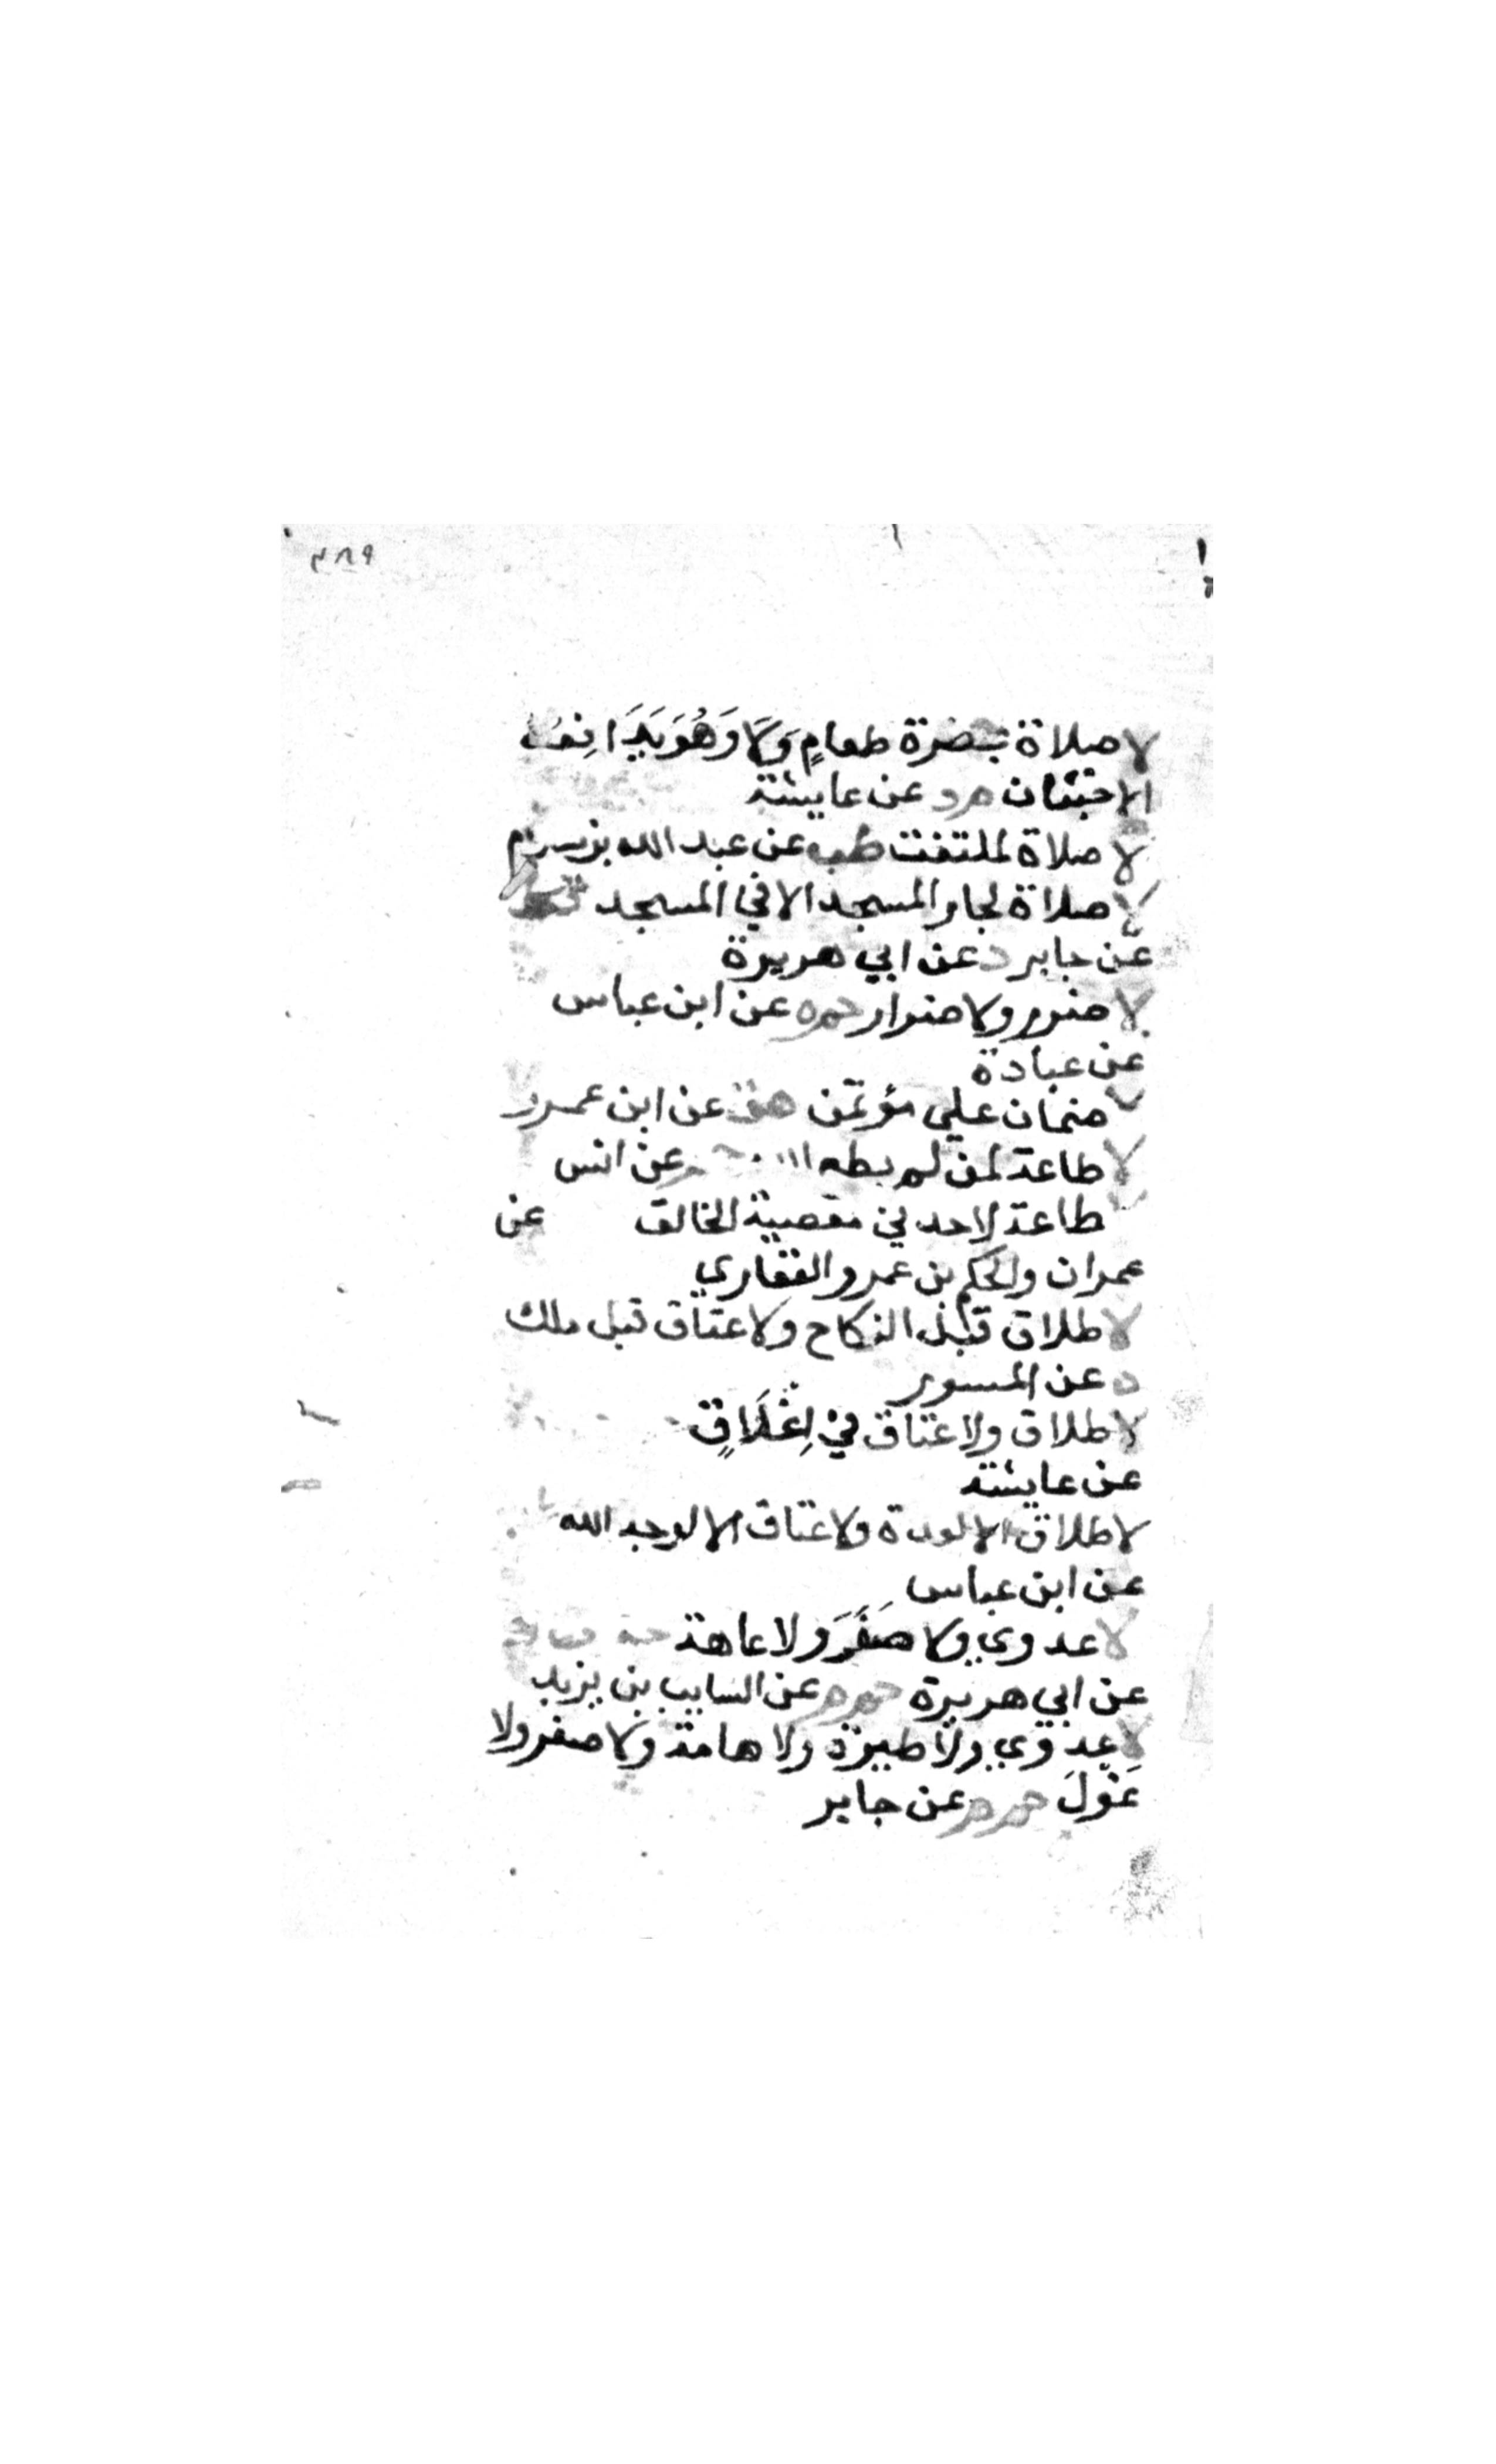 ٣٨٩
لا صلاة بحضرة طعامٍ وَلَا وَهُوَ يَدَافِعُهُ
الاخبثان م د عن عايشة
لا صلاة لملتفت طب عن عبد الله بن سلام
لا صلاة لجار المسجد الا في المسجد قط
عن جابر د عن ابي هريرة
لا ضرر ولا ضرار حم ه عن ابن عباس
عن عبادة
لا ضمان علي مؤتمن هق عن ابن عمرو
لا طاعة لمن لم يطع الله حم عن انس
لا طاعة لاحد في معصية الخالق عن
عمران والحكم بن عمرو الغفاري
لا طلاق قبل النكاح ولا عتاق قبل ملك
ه عن المسور
لا طلاق ولا عتاق في إِغْلَاقٍ
عن عايشة
لا طلاق الا لعدة ولا عتاق الا لوجه الله
عن ابن عباس
لا عدوي ولا صَفَرَ ولا هامة حم ق
عن ابي هريرة حم م عن السايب بن يزيد
لا عدوي ولا طيرة ولا هامة ولا صفر ولا
غولَ حم م عن جابر